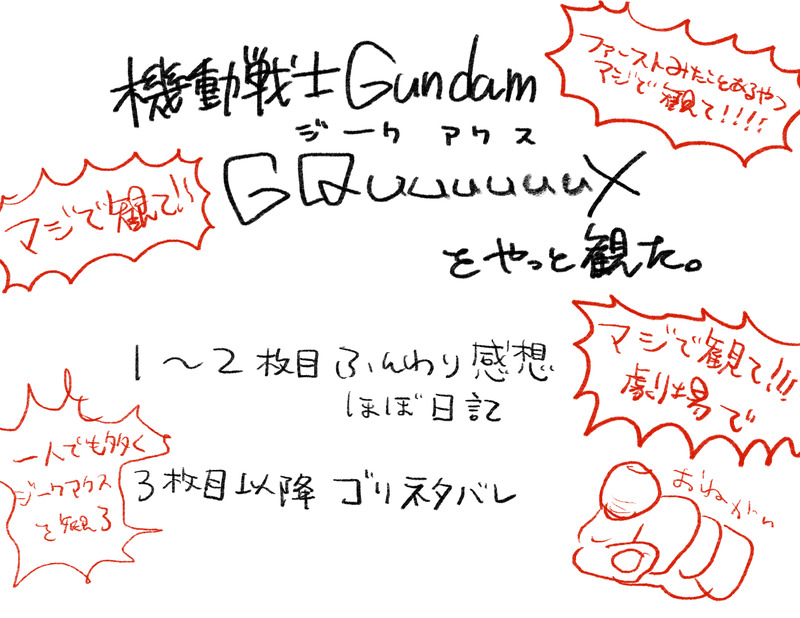 機動戦士Gundam
ジークアクス
GQuuuuuuX
をやっと観た。
ファーストみたことあるやつ
マジで観て!!!!
マジで観て!!
1〜2枚目 ふんわり感想
ほぼ日記
3枚目以降 ゴリネタバレ
マジで観て!!!
劇場で
一人でも多く
ジークアクス
を観ろ
おねがい